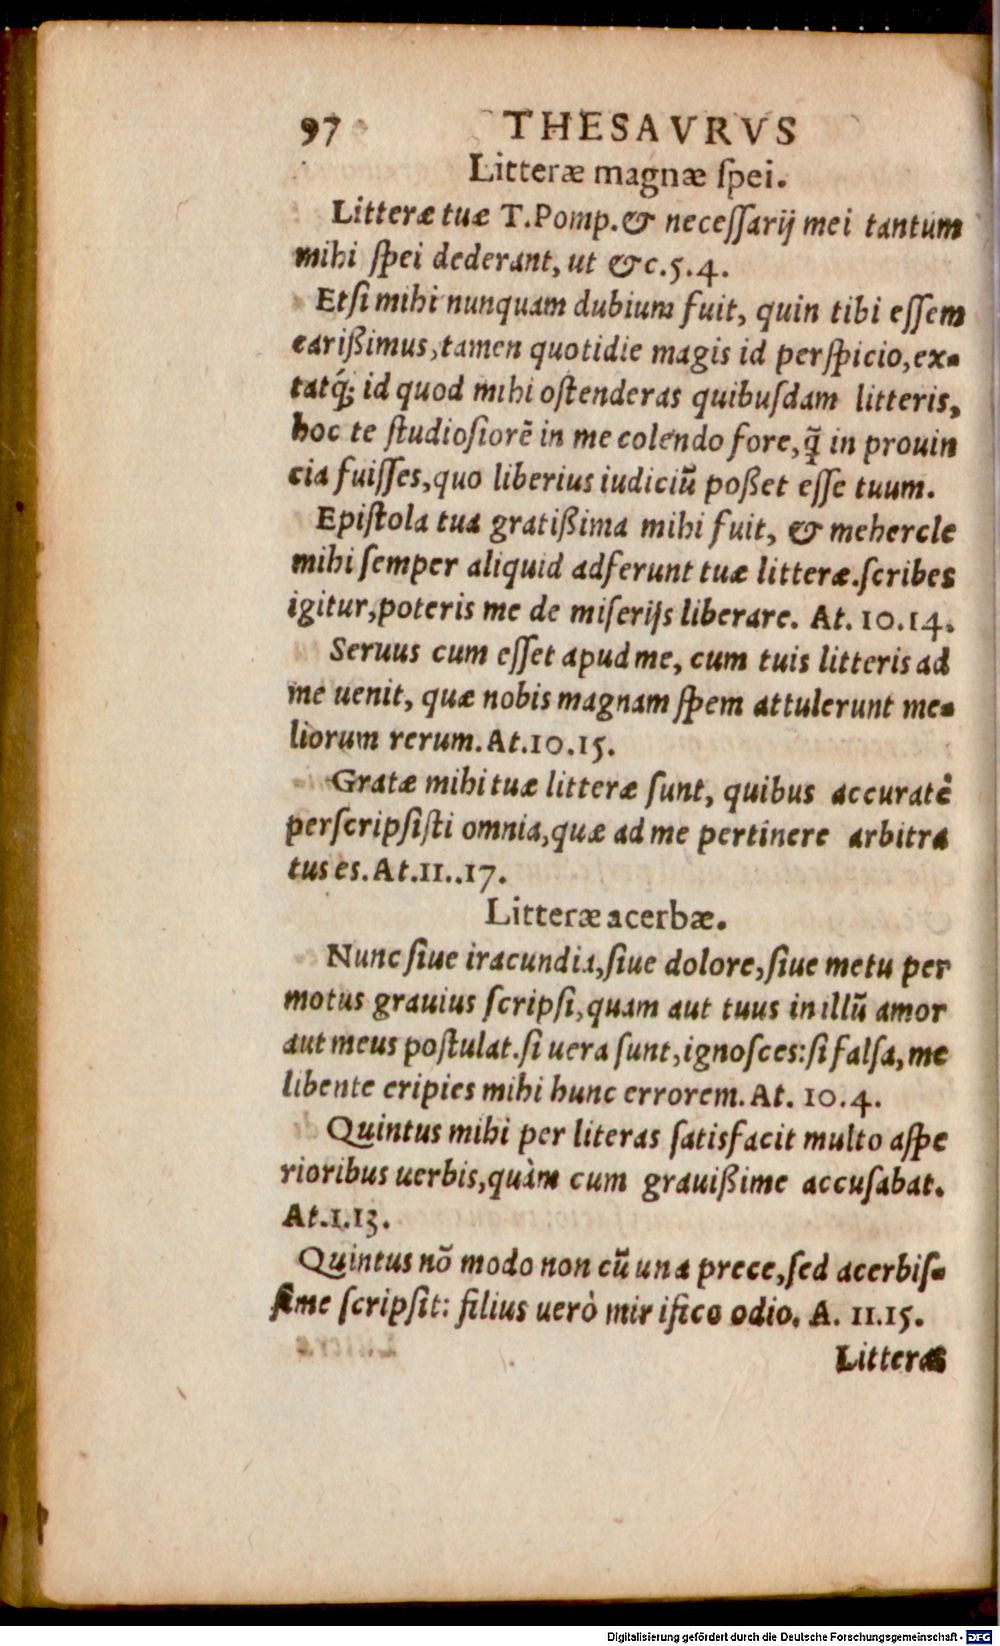 97 THESAVRVS
Litteræ magnæ ſpei.
Litteræ tuæ T.Pomp.& neceſſarij mei tantum
mihi ſpei dederant, ut &c.5.4.
Etſi mihi nunquam dubium fuit, quin tibi eſſem
carißimus, tamen quotidie magis id perſpicio, ex-
tatq́; id quod mihi oſtenderas quibuſdam litteris,
hoc te ſtudioſiorē in me colendo fore, q̃ in prouin
cia fuiſſes, quo liberius iudiciū poßet eſſe tuum.
Epiſtola tua gratißima mihi fuit, & mehercle
mihi ſemper aliquid adferunt tuæ litteræ.ſcribes
igitur, poteris me de miſerijs liberare. At. 10.14.
Seruus cum eſſet apud me, cum tuis litteris ad
me uenit, quæ nobis magnam ſpem attulerunt me-
liorum rerum. At.10.15.
Gratæ mihi tuæ litteræ ſunt, quibus accuratè
perſcripſiſti omnia, quæ ad me pertinere arbitra
tus es. At.11..17.
Litteræ acerbæ.
Nunc ſiue iracundia, ſiue dolore, ſiue metu per
motus grauius ſcripſi, quam aut tuus in illū amor
aut meus poſtulat.ſi uera ſunt, ignoſces: ſi falſa, me
libente eripies mihi hunc errorem. At. 10.4.
Quintus mihi per literas ſatisfacit multo aſpe
rioribus uerbis, quàm cum grauißime accuſabat.
At.1.13.
Quintus nō modo non cū una prece, ſed acerbiſ-
ſime ſcripſit: filius uerò mirifico odio. A. 11.15.
Litteræ
Digitalisierung gefördert durch die Deutsche Forschungsgemeinschaft - DFG